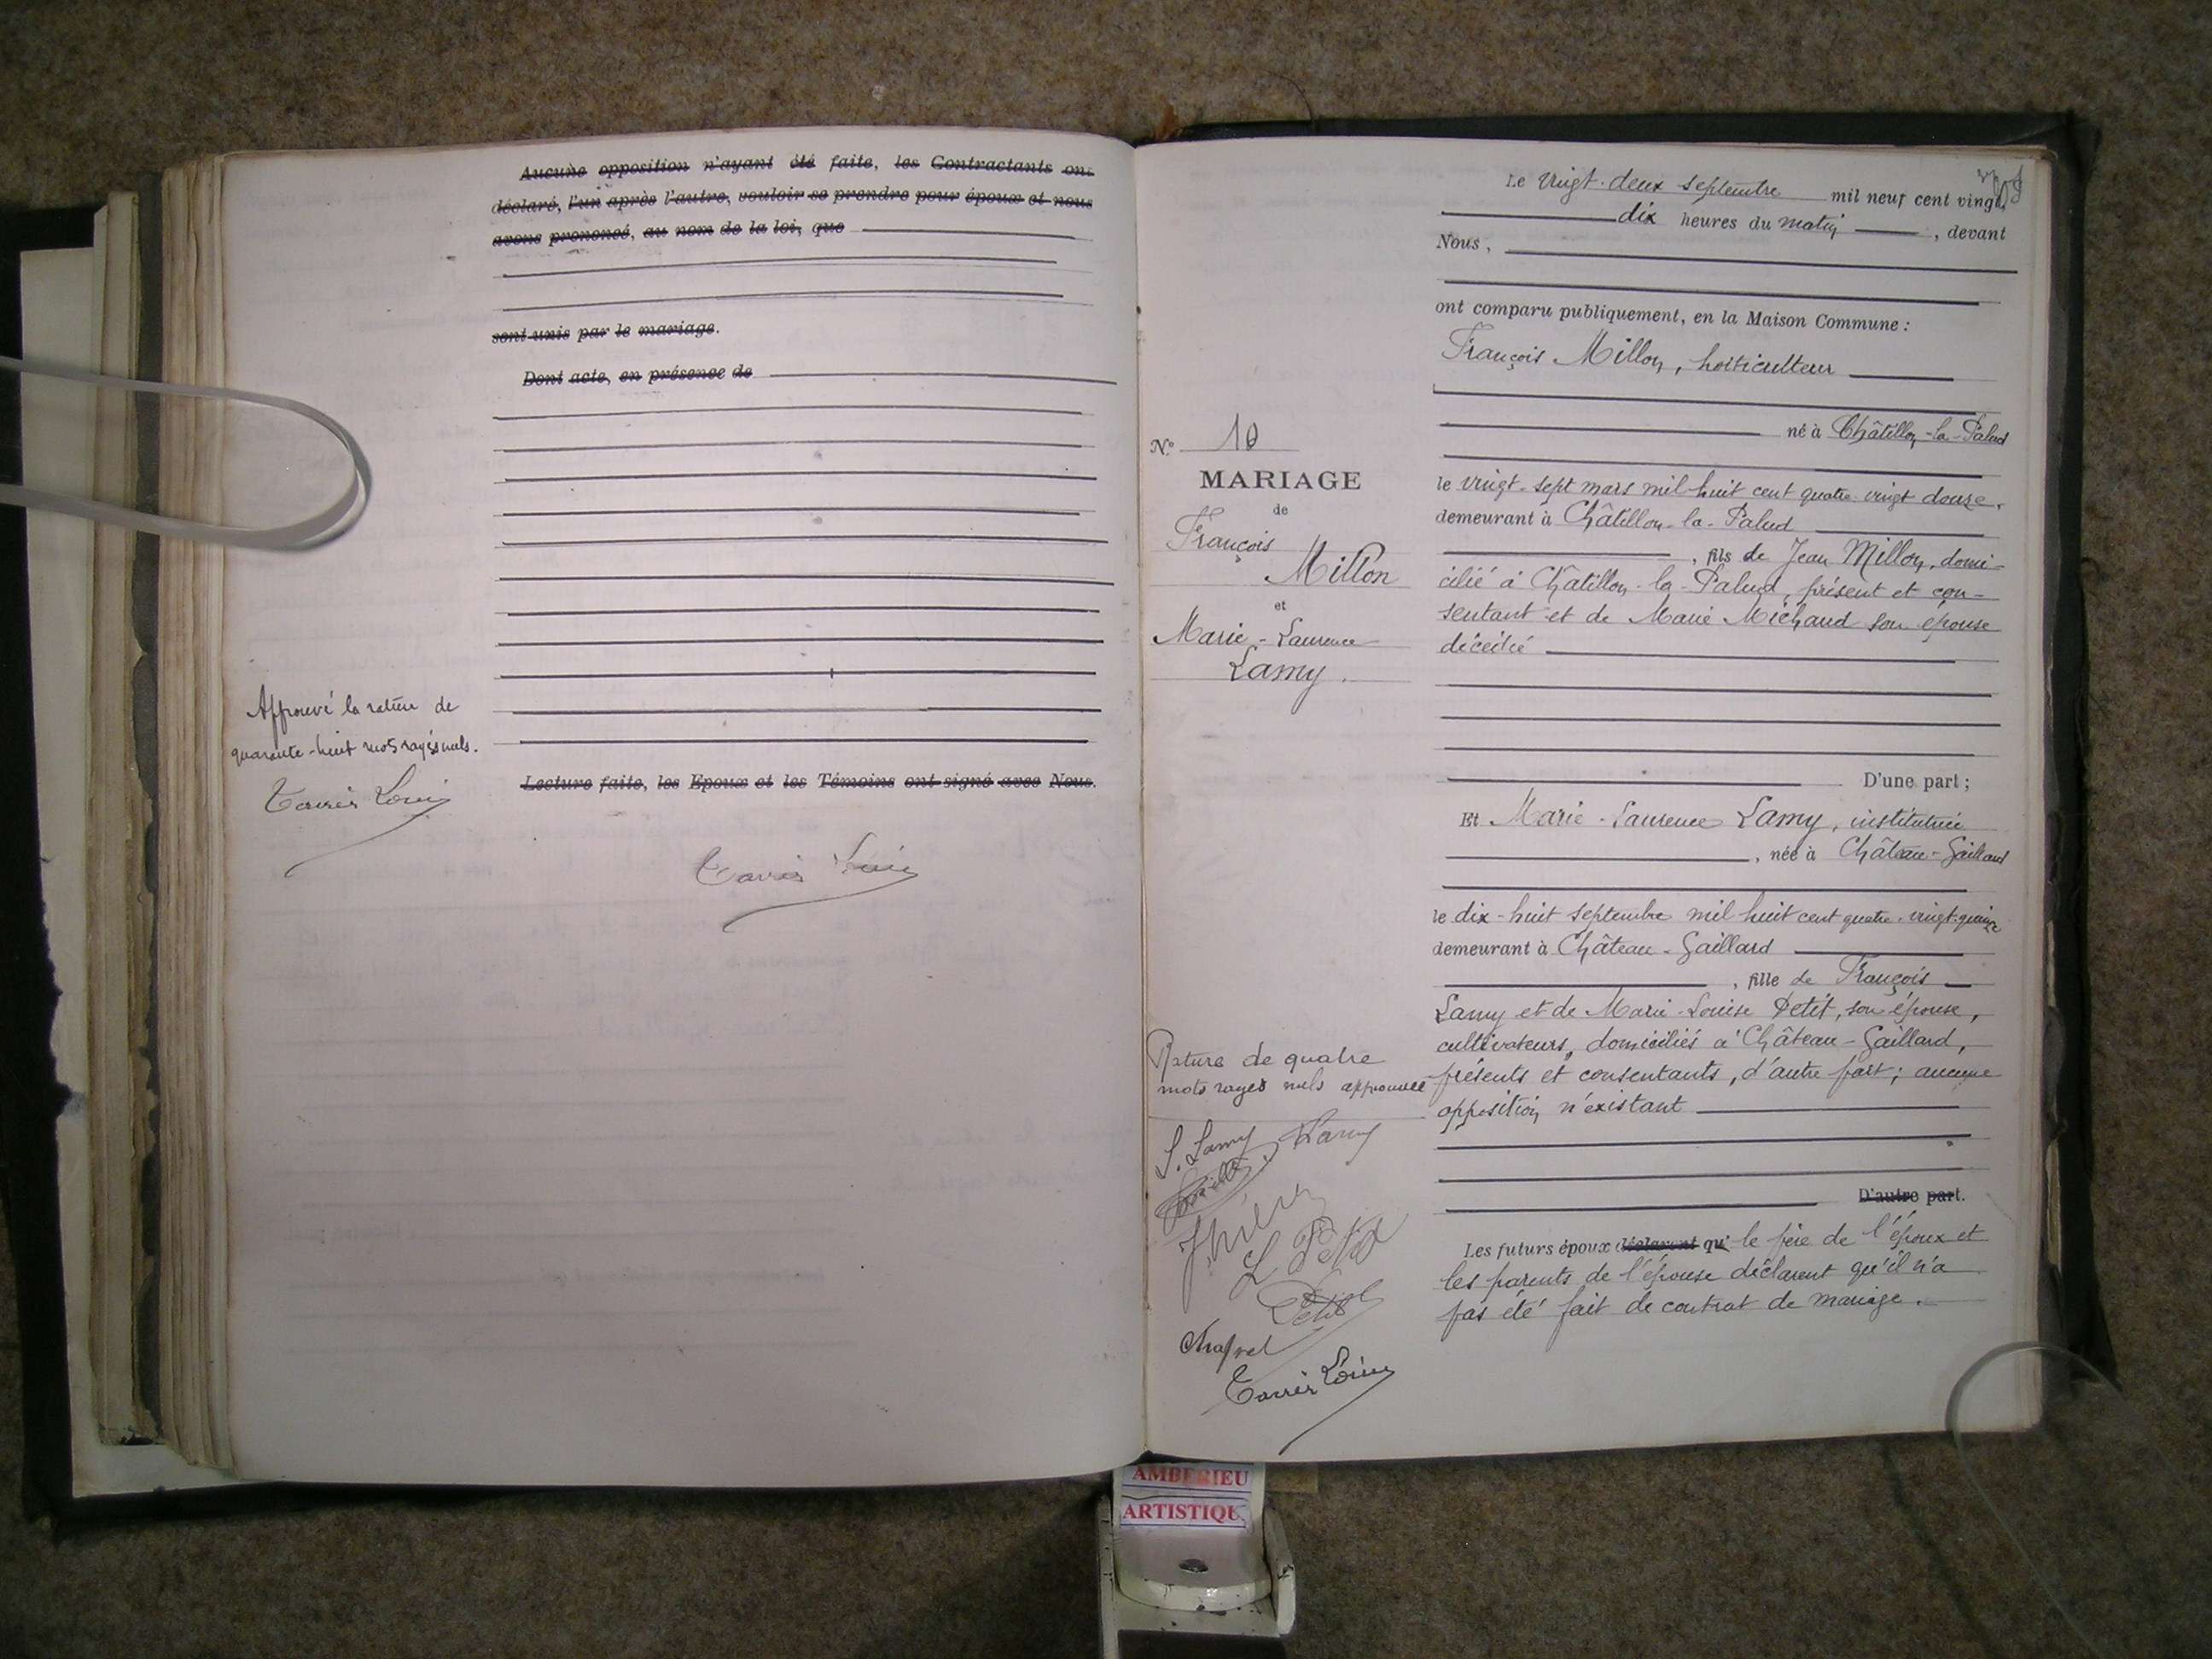 Aucune opposition n'ayant été faite, les Contractants ont
déclaré, l'un après l'autre, vouloir se prendre pour époux et nous
avons prononcé, au nom de la loi, que
sont unis par le mariage.
Dont acte, en présence de
Approuvé la rature de
quarante-huit mots rayés nuls.
Lecture faite, les Epoux et les Témoins ont signé avec Nous.
Le vingt-deux septembre mil neuf cent vingt,
dix heures du matin, devant
Nous,
ont comparu publiquement, en la Maison Commune :
François Millon, horticulteur
né à Châtillon-la-Palud
le vingt-sept mars mil huit cent quatre-vingt douze,
demeurant à Châtillon-la-Palud
, fils de Jean Millon, domi-
cilié à Châtillon-la-Palud, présent et con-
sentant et de Marie Michaud son épouse
décédée
D'une part ;
N° 10
MARIAGE
de
François
Millon
et
Marie-Laurence
Lamy.
Et Marie-Laurence Lamy, institutrice
, née à Château-Gaillard
le dix-huit septembre mil huit cent quatre-vingt-quinze
demeurant à Château-Gaillard
, fille de François
Lamy et de Marie-Louise Petit, son épouse,
cultivateurs, domiciliés à Château-Gaillard,
présents et consentants, d'autre part ; aucune
opposition n'existant
D'autre part.
Les futurs époux déclarent qu' le père de l'époux et
les parents de l'épouse déclarent qu'il n'a
pas été fait de contrat de mariage.
Rature de quatre
mots rayés nuls approuvée
L. Lamy Lamy
L Petit
Petit
AMBERIEU
ARTISTIQU